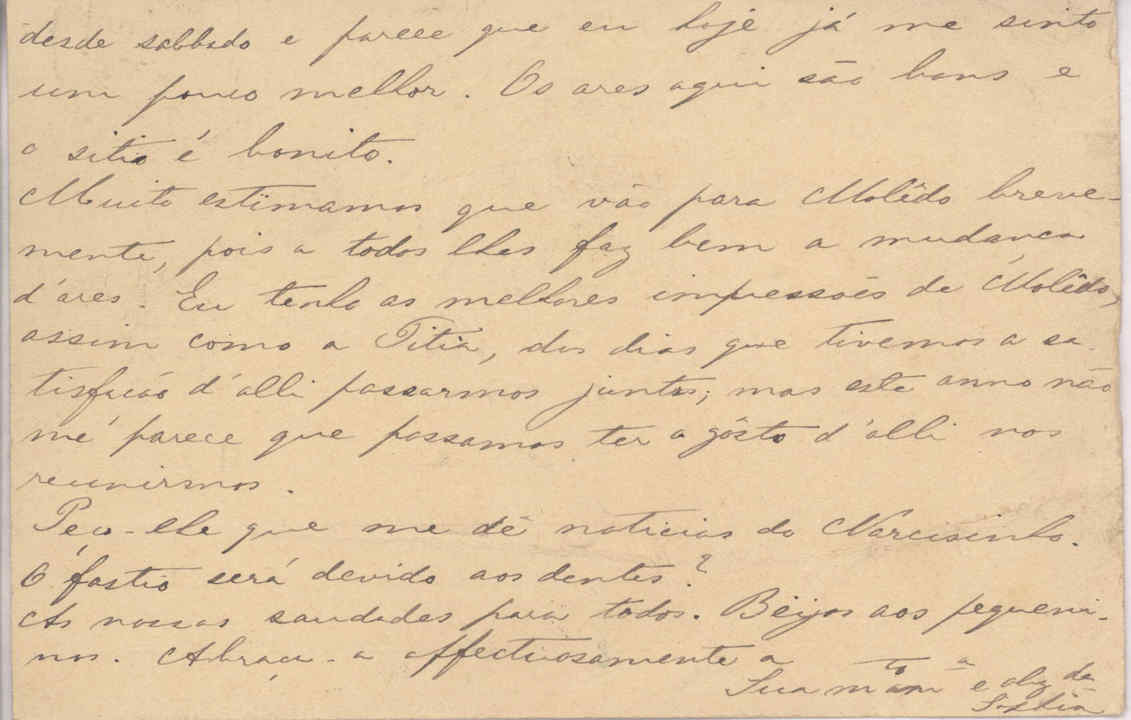 desde sabbado e parece que eu hoje já me sinto
um pouco melhor. Os ares aqui são bons e
o sitio é bonito.
Muito estimamos que vão para Molêdo breve-
mente, pois a todos lhes faz bem a mudança
d'ares. Eu tenho as melhores impressões de Molêdo,
assim como a Titia, dos dias que tivemos a sa-
tisfação d'alli passarmos juntos; mas este anno não
me parece que possamos ter o gôsto d'alli nos
reunirmos.
Peço-lhe que me dê noticias do Narcisinho.
O fastio será devido aos dentes?
As nossas saudades para todos. Beijos aos pequeni-
nos. Abraça-a affectuosamente a
Sua m.to am.a e obg.da